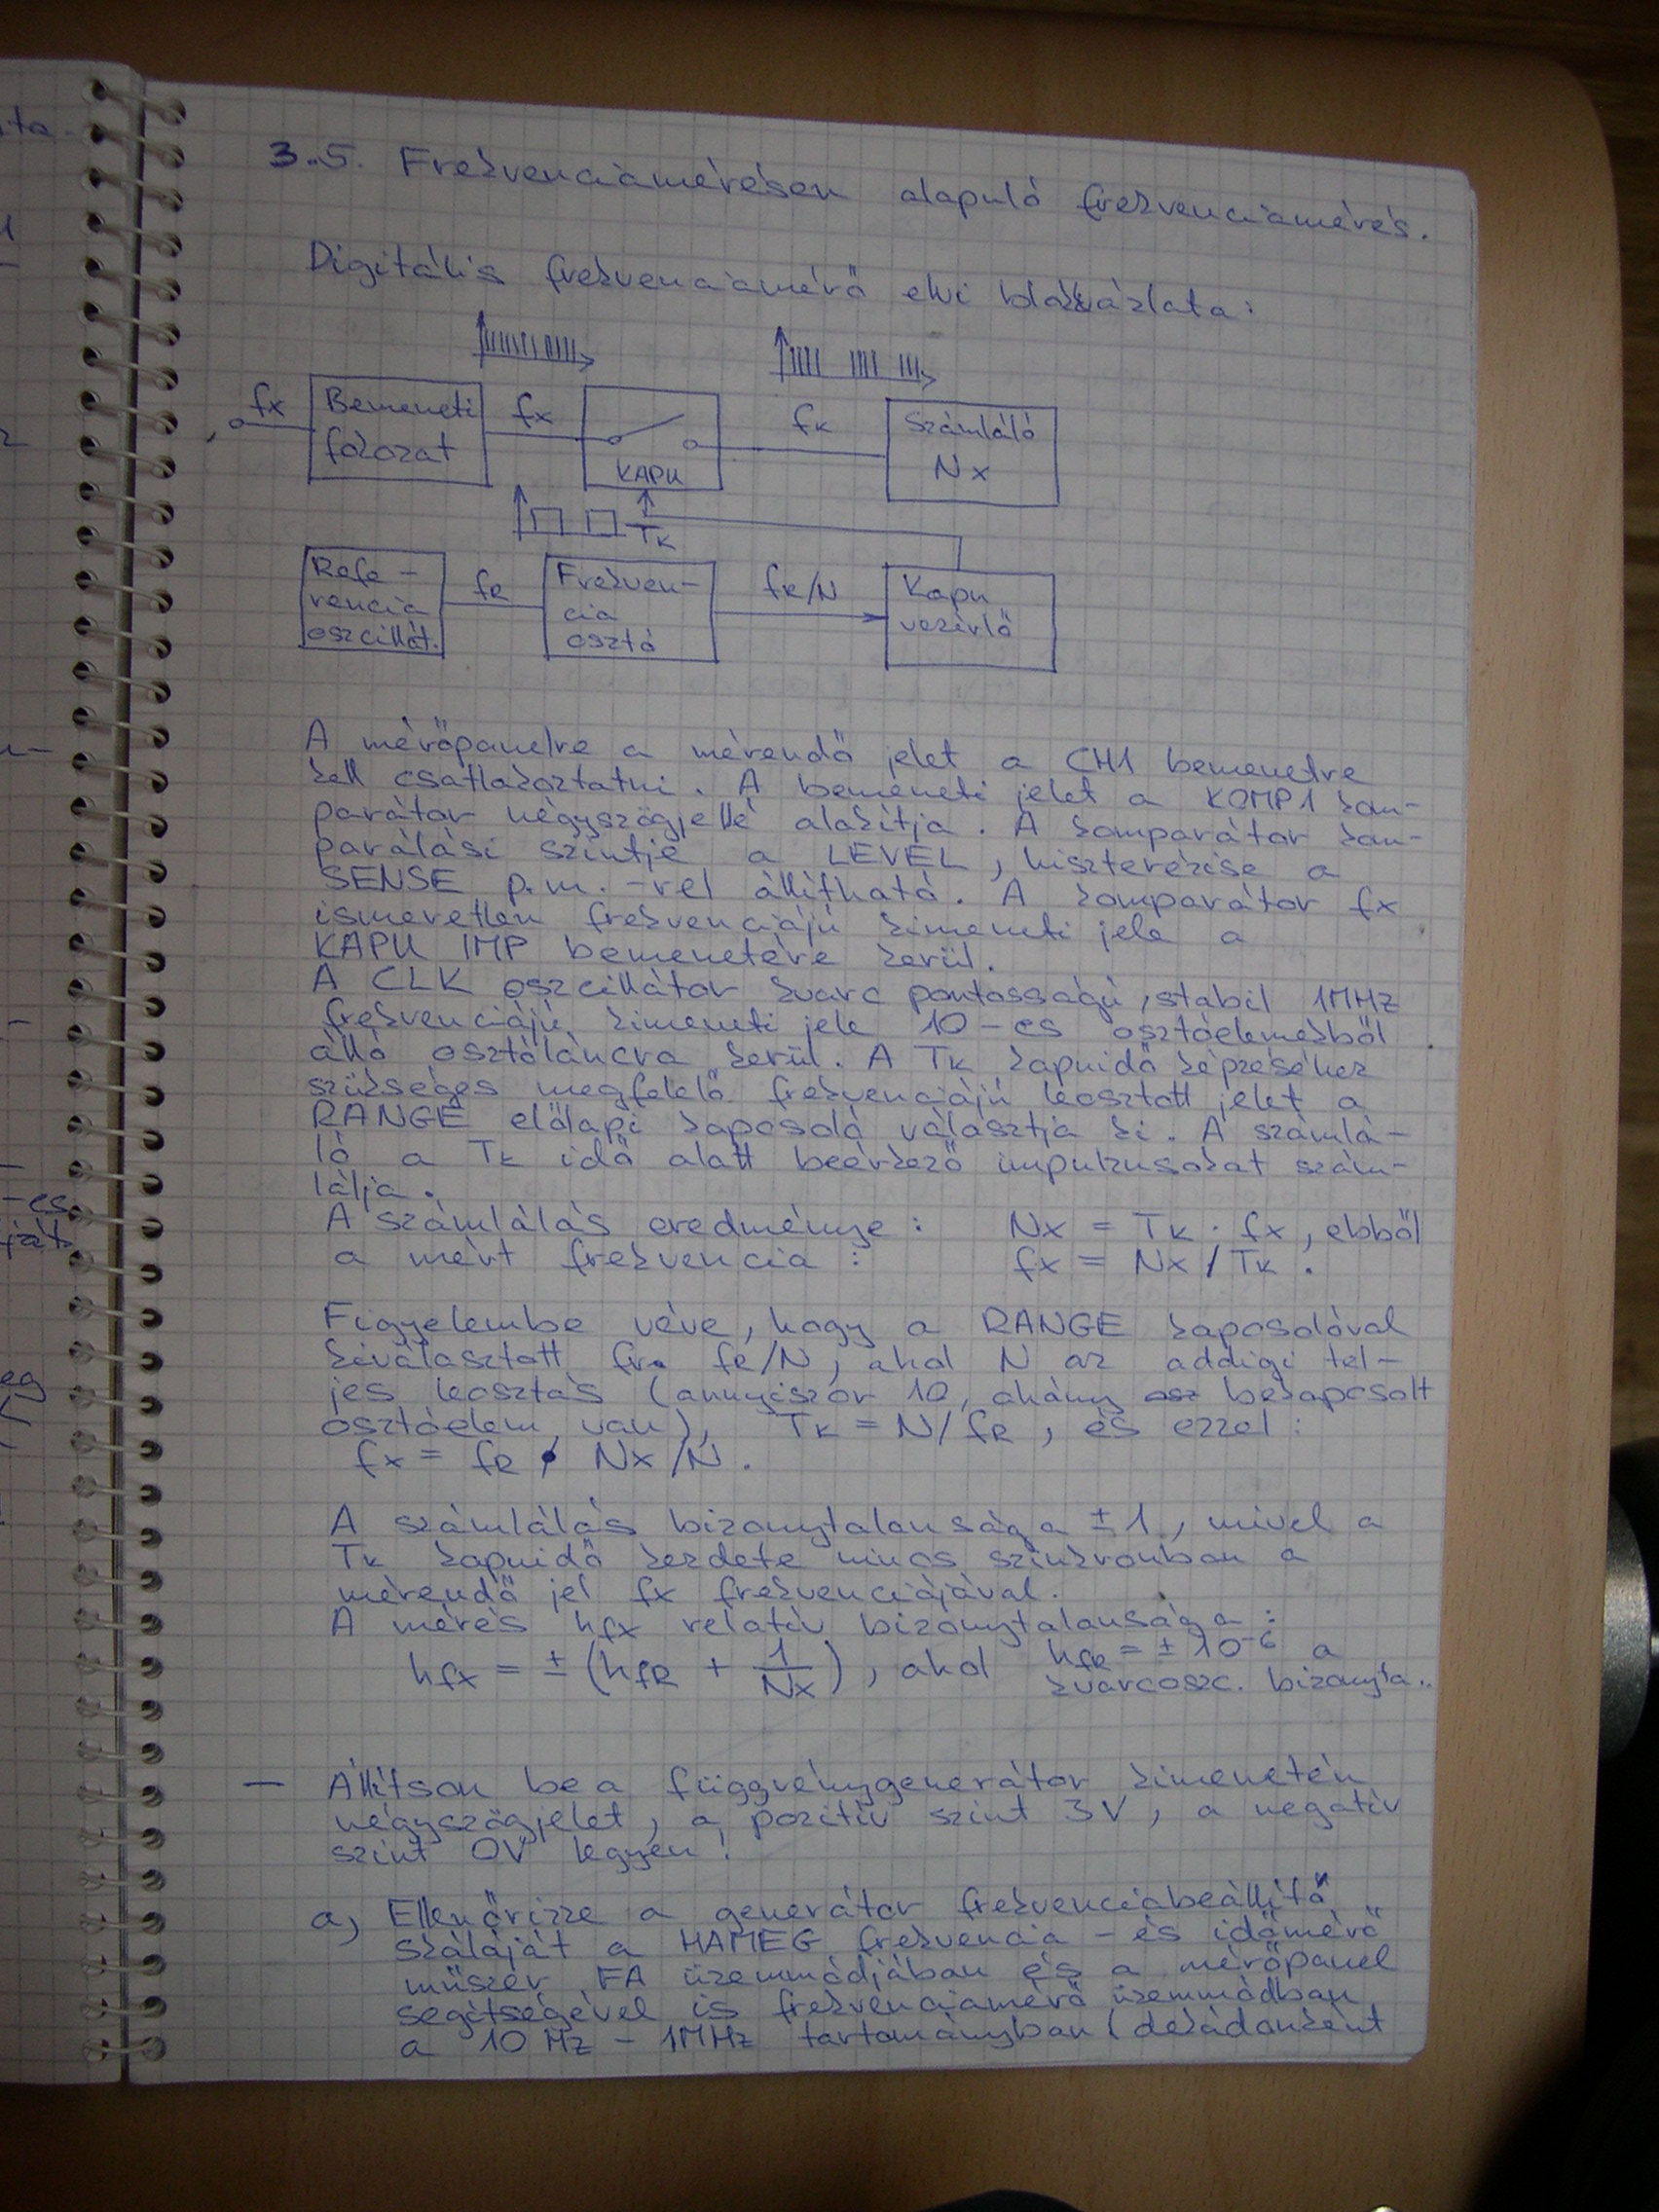 ita.
1
2
u-
-
-es
ját
eg
3.5. Frekvenciamérésen alapuló frekvenciamérés.
Digitális frekvenciamérő elvi blokkvázlata:
fx
Bemeneti
fokozat
fx
KAPU
fK
Számláló
Nx
TK
Refe-
rencia
oszcillát.
fR
Frekven-
cia
osztó
fR/N
Kapu
vezérlő
A mérőpanelre a mérendő jelet a CH1 bemenetre
kell csatlakoztatni. A bemeneti jelet a KOMP1 kom-
parátor négyszögjellé alakítja. A komparátor kom-
parálási szintje a LEVEL, hiszterézise a
SENSE p.m.-rel állítható. A komparátor fx
ismeretlen frekvenciájú kimeneti jele a
KAPU IMP bemenetére kerül.
A CLK oszcillátor kvarc pontosságú, stabil 1MHz
frekvenciájú kimeneti jele 10-es osztóelemekből
álló osztóláncra kerül. A TK kapuidő képzéséhez
szükséges megfelelő frekvenciájú leosztott jelet a
RANGE előlapi kapcsoló választja ki. A számlá-
ló a TK idő alatt beérkező impulzusokat szám-
lálja.
A számlálás eredménye: Nx = TK · fx, ebből
a mért frekvencia: fx = Nx / TK.
Figyelembe véve, hogy a RANGE kapcsolóval
kiválasztott fr. fR/N, ahol N az addigi tel-
jes leosztás (annyiszor 10, ahány osz bekapcsolt
osztóelem van), TK = N/fR, és ezzel:
fx = fR · Nx/N.
A számlálás bizonytalansága ±1, mivel a
TK kapuidő kezdete nincs szinkronban a
mérendő jel fx frekvenciájával.
A mérés hfx relatív bizonytalansága:
hfx = ± (hfR + 1/Nx), ahol hfR = ± 10⁻⁶ a
kvarcoszc. bizonyta..
— Állítson be a függvénygenerátor kimenetén
négyszögjelet, a pozitív szint 3V, a negatív
szint 0V legyen!
a) Ellenőrizze a generátor frekvenciabeállító
skáláját a HAMEG frekvencia- és időmérő
műszer FA üzemmódjában és a mérőpanel
segítségével is frekvenciamérő üzemmódban
a 10 Hz - 1MHz tartományban (dekádonként